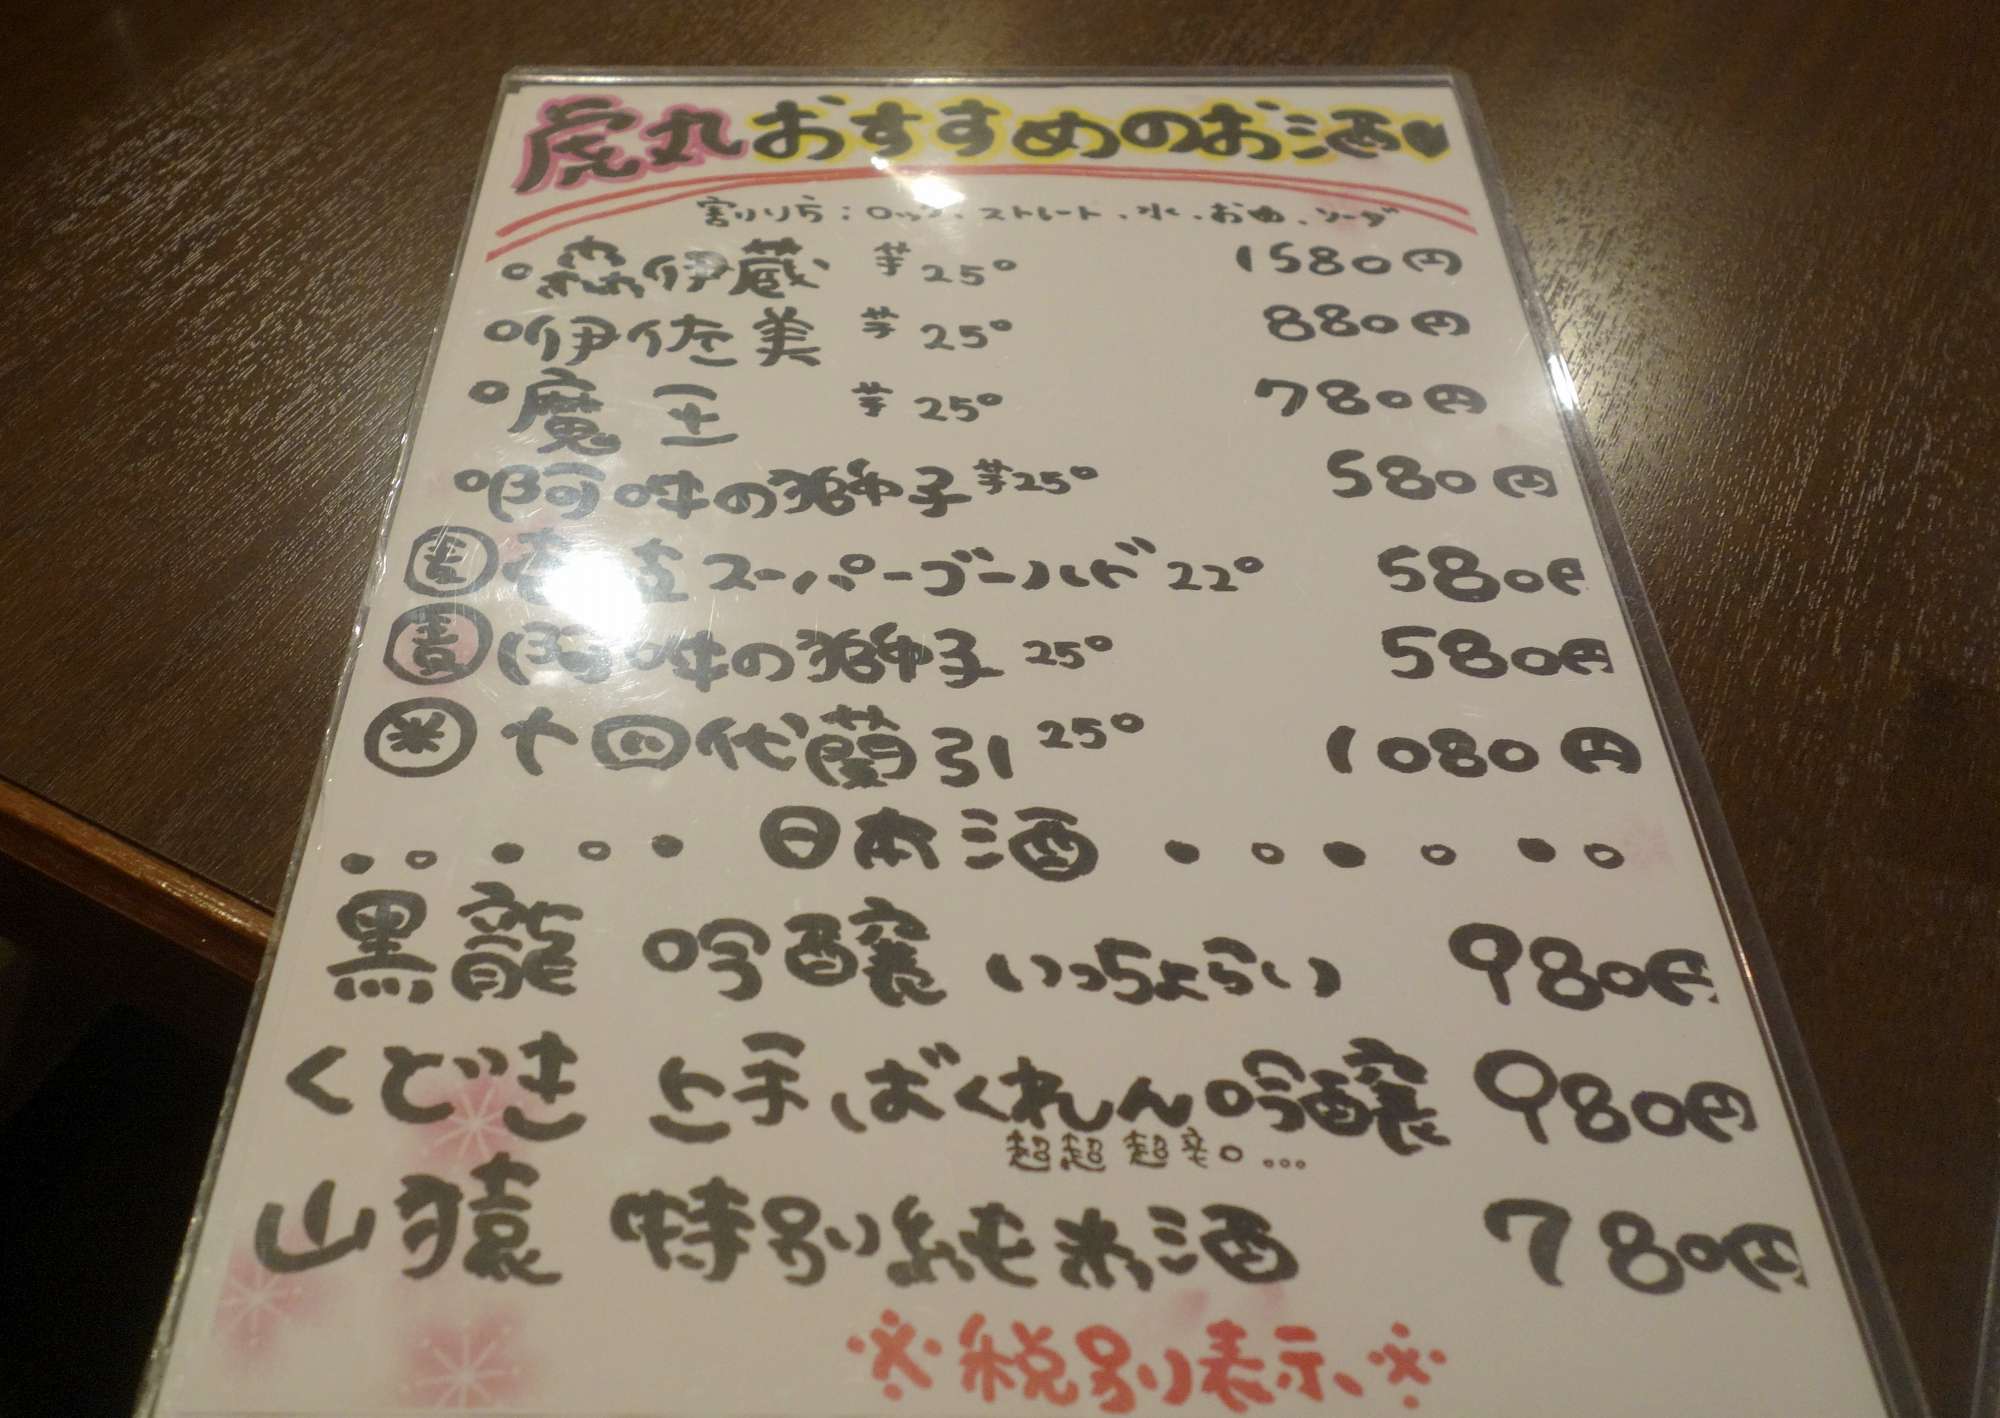 虎丸おすすめのお酒♥
割り方:ロック、ストレート、水、お湯、ソーダ
○森伊蔵 芋25° 1580円
○伊佐美 芋25° 880円
○魔王 芋25° 780円
○阿吽の獅子 芋25° 580円
麦 壱岐スーパーゴールド22° 580円
麦 阿吽の獅子 25° 580円
米 十四代蘭引25° 1080円
・○・○・日本酒・○・○・○
黒龍 吟醸 いっちょらい 980円
くどき上手 ばくれん吟醸 980円
超超超辛。...
山猿 特別純米酒 780円
※税別表示、※